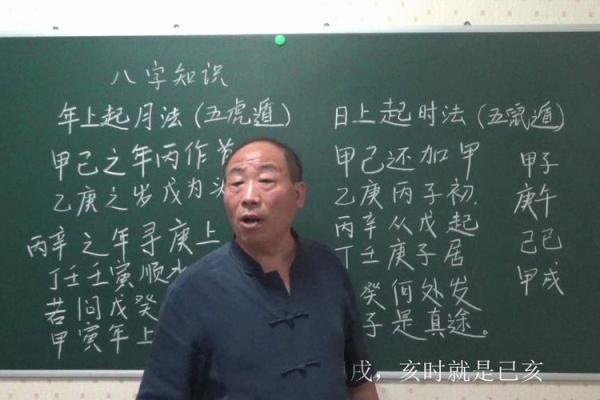 八字知识
年上起月法（五虎遁）
甲己之年丙作
乙庚之岁戊为
丙辛之年寻庚上
丁壬壬寅顺水
若问戊癸
甲寅年上
日上起时法（五鼠遁）
甲己还加甲
乙庚丙子初
丙辛从戊起
丁壬庚子居
癸何处发
子是真途。
甲子
庚午
己巳
甲戌
戌，亥时就是已亥